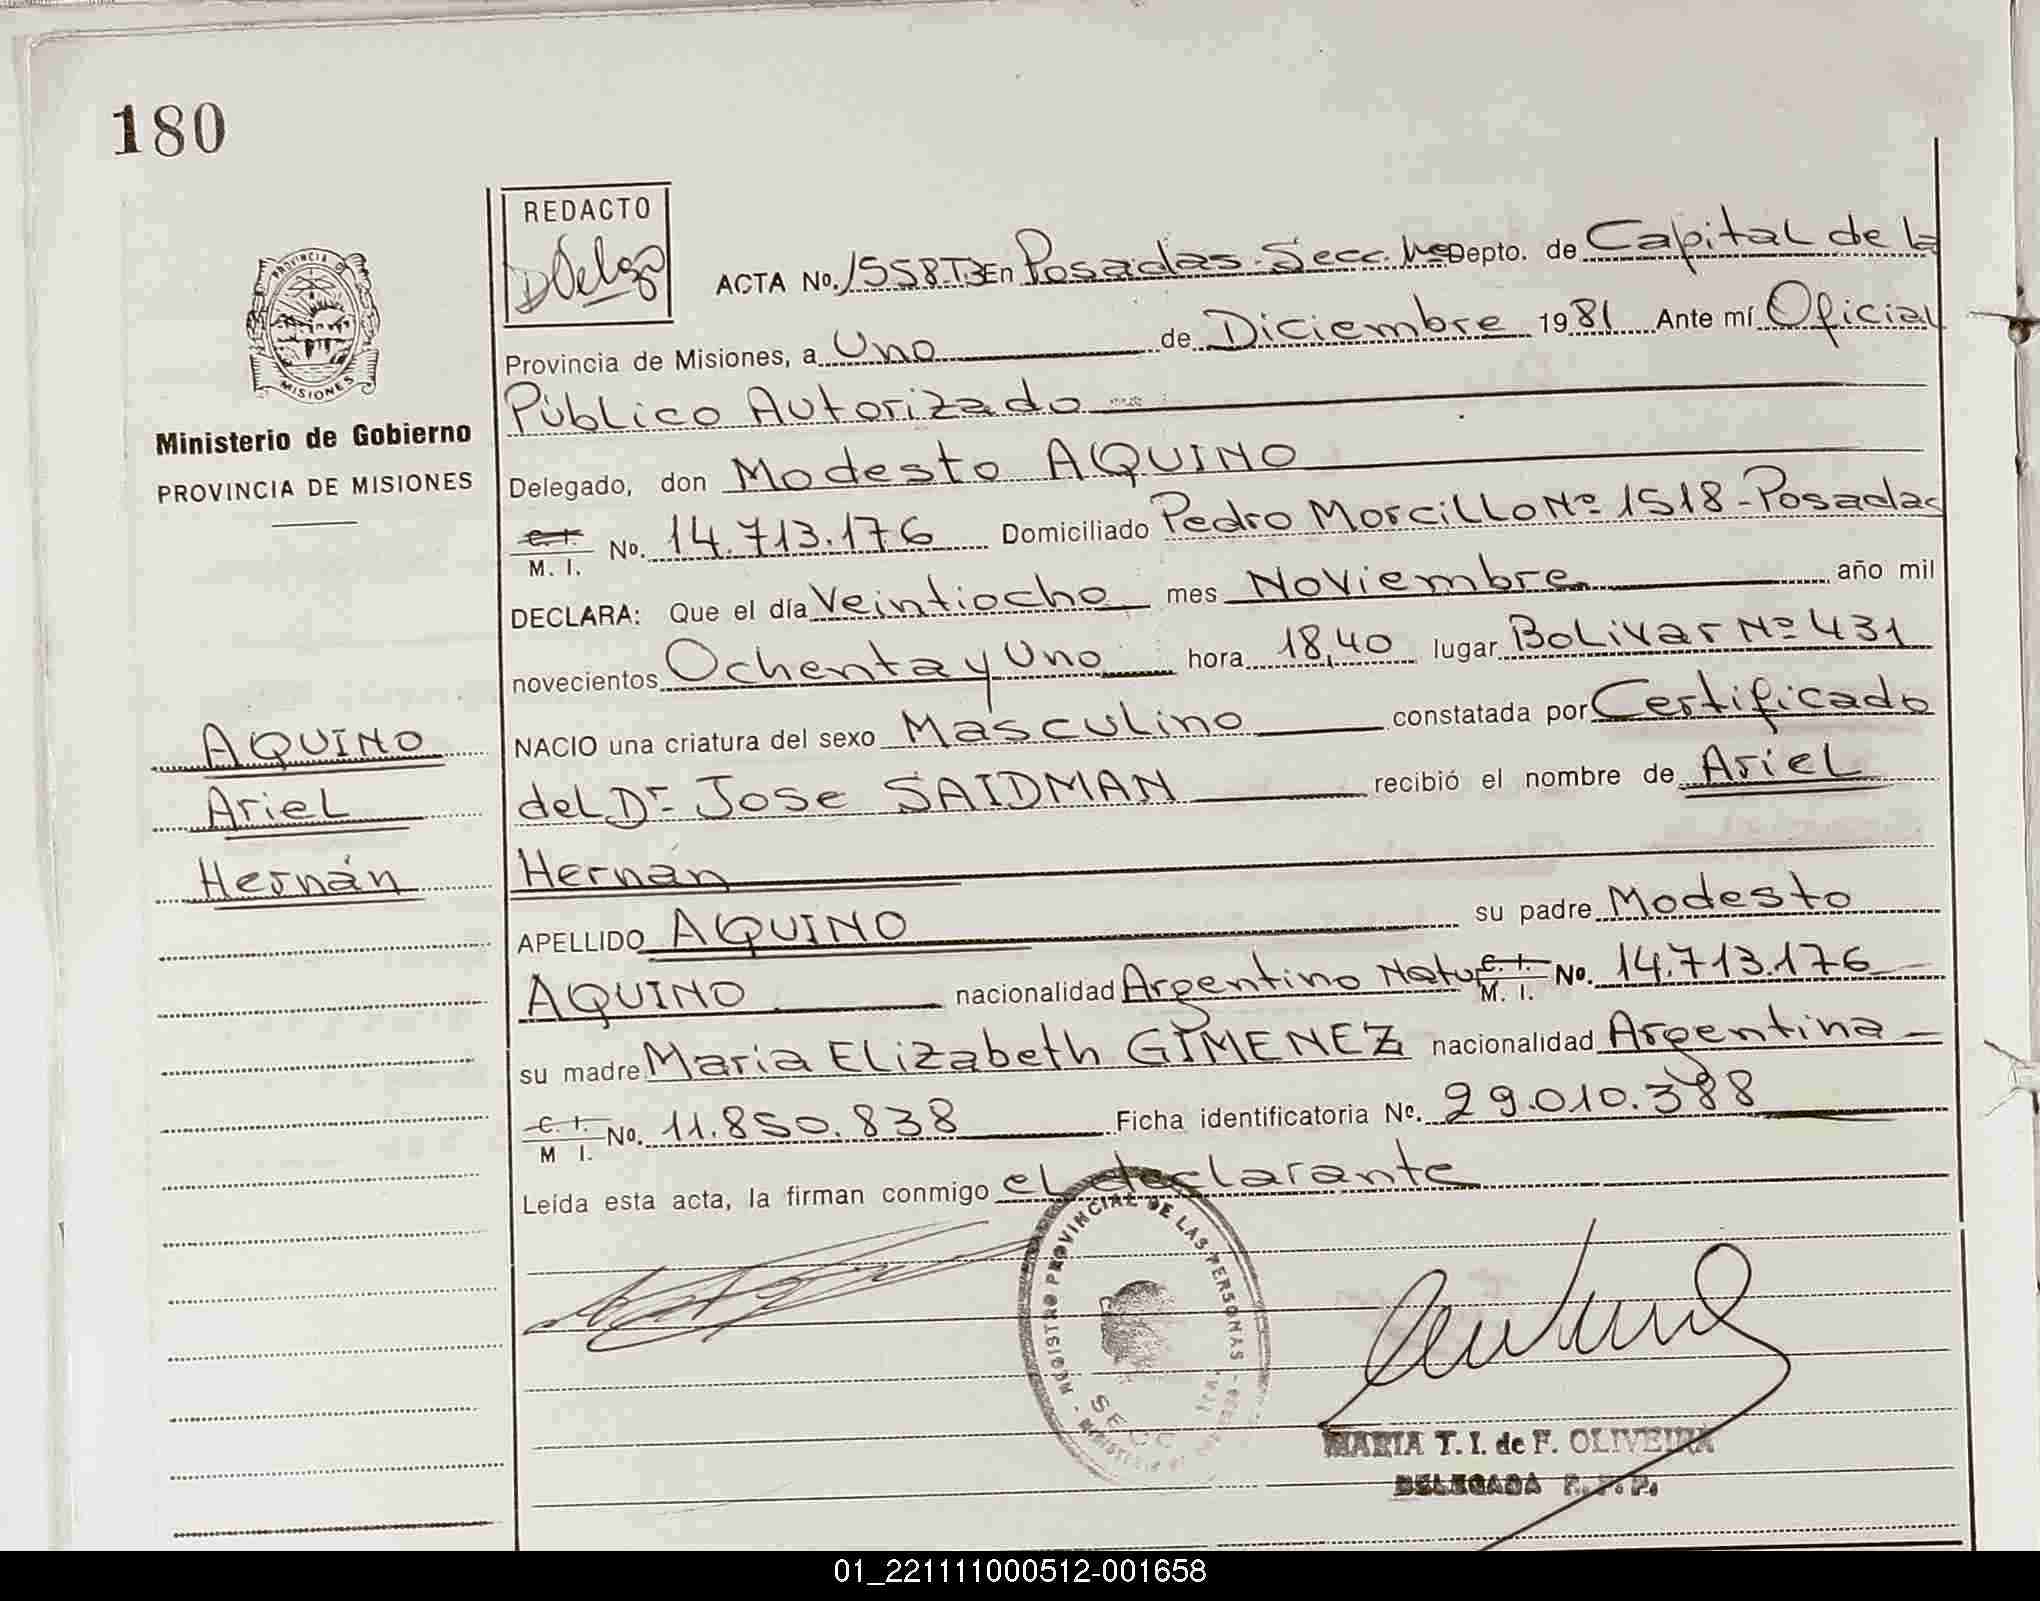 180
REDACTO
ACTA No. 1558T3 En Posadas - Secc. 1ª Depto. de Capital de la
Provincia de Misiones, a Uno de Diciembre 1981 Ante mí Oficial
Público Autorizado
Delegado, don Modesto AQUINO
C. I. M. I. No. 14.713.176 Domiciliado Pedro Morcillo Nº 1518 - Posadas
DECLARA: Que el día Veintiocho mes Noviembre año mil
novecientos Ochenta y Uno hora 18,40 lugar Bolivar Nº 431
NACIO una criatura del sexo Masculino constatada por Certificado
del Dr. Jose SAIDMAN recibió el nombre de Ariel
Hernán
APELLIDO AQUINO su padre Modesto
AQUINO nacionalidad Argentino Natu C. I. M. I. No. 14.713.176
su madre Maria Elizabeth GIMENEZ nacionalidad Argentina
C. I. M I. No. 11.850.838 Ficha identificatoria No. 29.010.388
Leída esta acta, la firman conmigo el declarante
PROVINCIA DE
MISIONES
Ministerio de Gobierno
PROVINCIA DE MISIONES
AQUINO
Ariel
Hernán
REGISTRO PROVINCIAL DE LAS PERSONAS
SECC.
MARIA T. I. de F. OLIVEIRA
DELEGADA R. P. P.
01_221111000512-001658